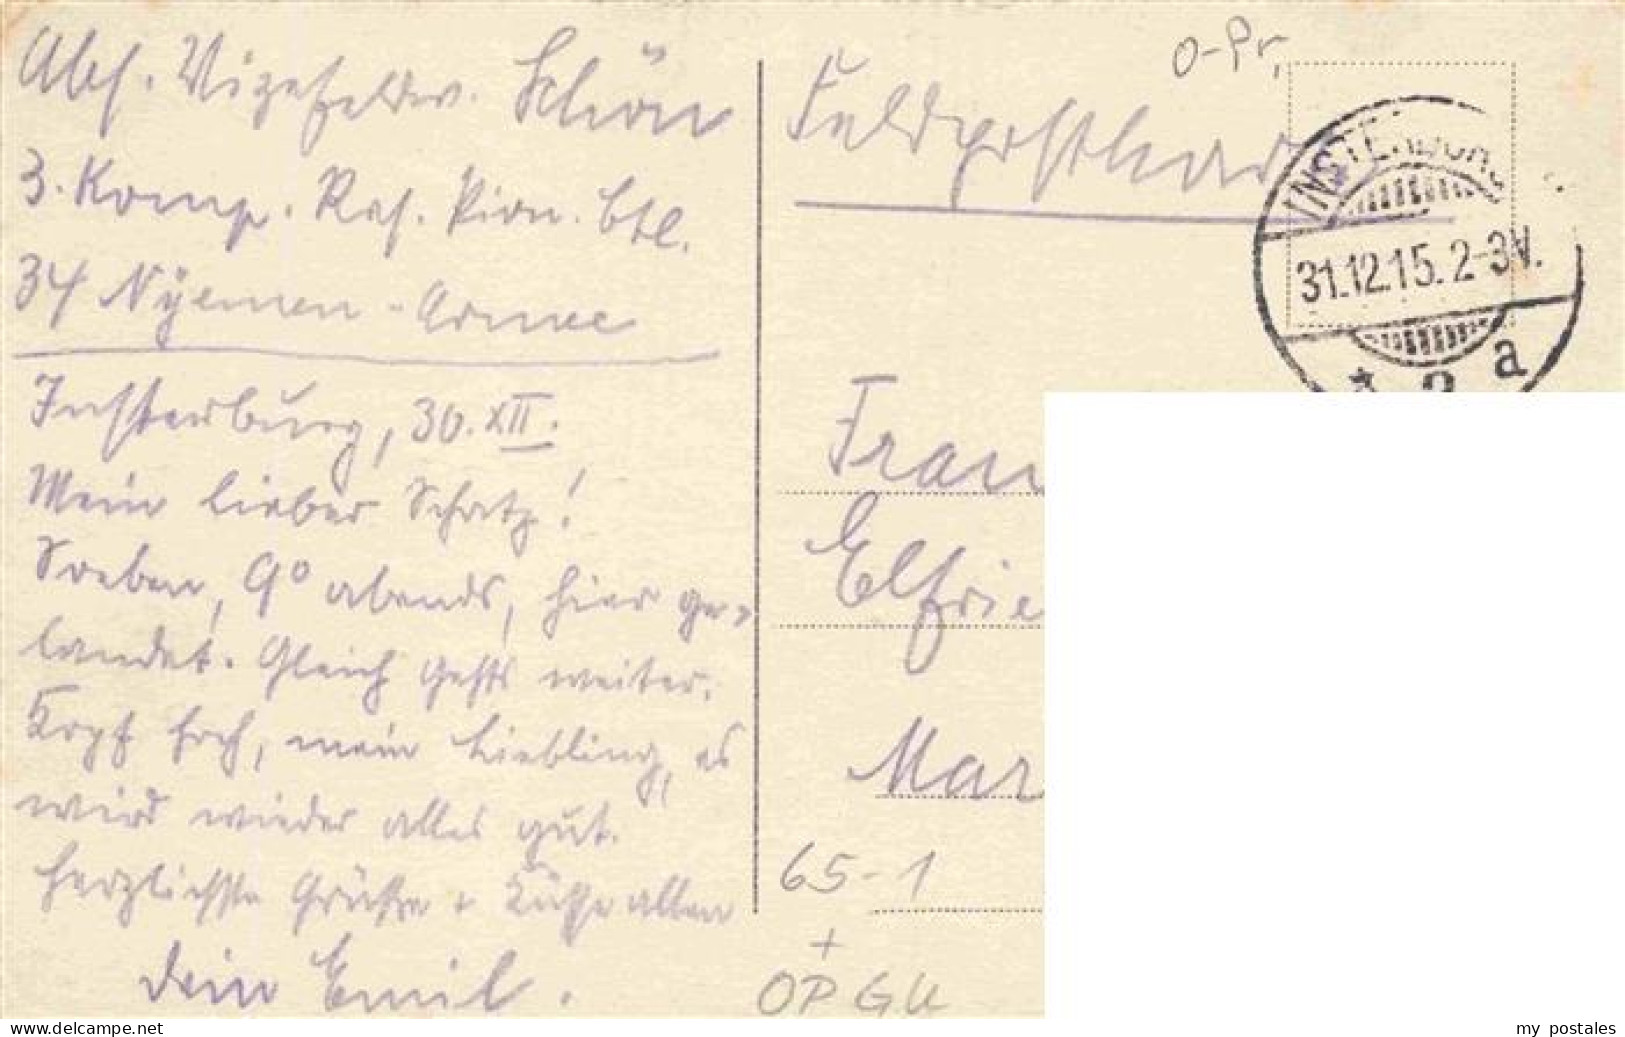 Abs. Vizefeldw. Schön
3. Komp. Res. Pion. Btl.
34 Njemen-Armee
Insterburg, 30. XII.
Mein lieber Schatz!
Soeben, 9° abends, hier ge-
landet. Gleich gehts weiter.
Kopf hoch, mein Liebling, es
wird wieder alles gut.
Herzlichste Grüße + Küsse allen
Dein Emil.
O-Pr,
Feldpostkar
INSTERBURG
31.12.15. 2-3V.
* 2 a
Frau
Elfrie
Mar
65-1
+
OPGU
my postales
www.delcampe.net